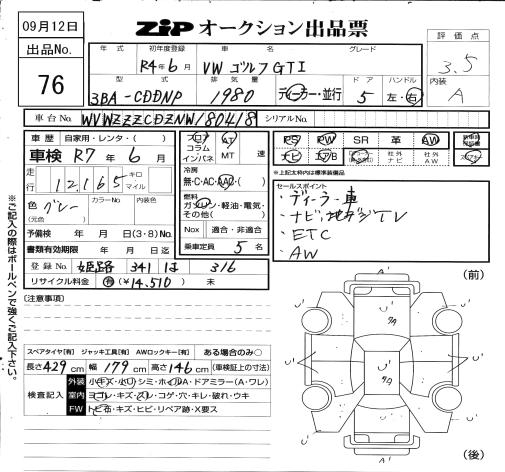 09月12日
ZIP オークション出品票
出品No.
76
評価点
3.5
内装
A
年式 初年度登録 車名 グレード
R4年6月 VW ゴルフGTI
型式 排気量 ドア ハンドル
3BA-CDDNP 1980 ディーラー・並行 5 左・右
車台No. WVWZZZCDZNW180418 シリアルNo.
車歴 自家用・レンタ・( )
車検 R7年6月
走行 12,165 キロ マイル
色 グレー カラーNo. 内装色
(元色)
予備検 年 月 日(3・8)No.
書類有効期限 年 月 日迄
登録No. 姫路 341 は 316
リサイクル料金 有(¥14,510) 未
フロア コラム インパネ AT MT 速
冷房
無・C・AC・AAC・( )
燃料
ガソリン・軽油・電気・その他( )
Nox 適合・非適合
乗車定員 5 名
PS PW SR 革 AW
ナビ エアB 社外ナビ 社外AW
*上記太枠内は標準装備品
セールスポイント
・ディーラー車
・ナビ、地デジTV
・ETC
・AW
(注意事項)
スペアタイヤ[有] ジャッキ工具[有] AWロックキー[有] ある場合のみ〇
長さ429cm 幅179cm 高さ146cm (車検証上の寸法)
検査記入
外装 小キズ・小U・シミ・ホイルA・ドアミラー(A・ワレ)
室内 ヨゴレ・キズ・スレ・コゲ・穴・キレ・破れ・ウキ
FW トビ石・キズ・ヒビ・リペア跡・X要ス
※ご記入の際はボールペンで強くご記入下さい。
(前)
(後)
A'
U'
U'
U'
U'
U'
U'
A'